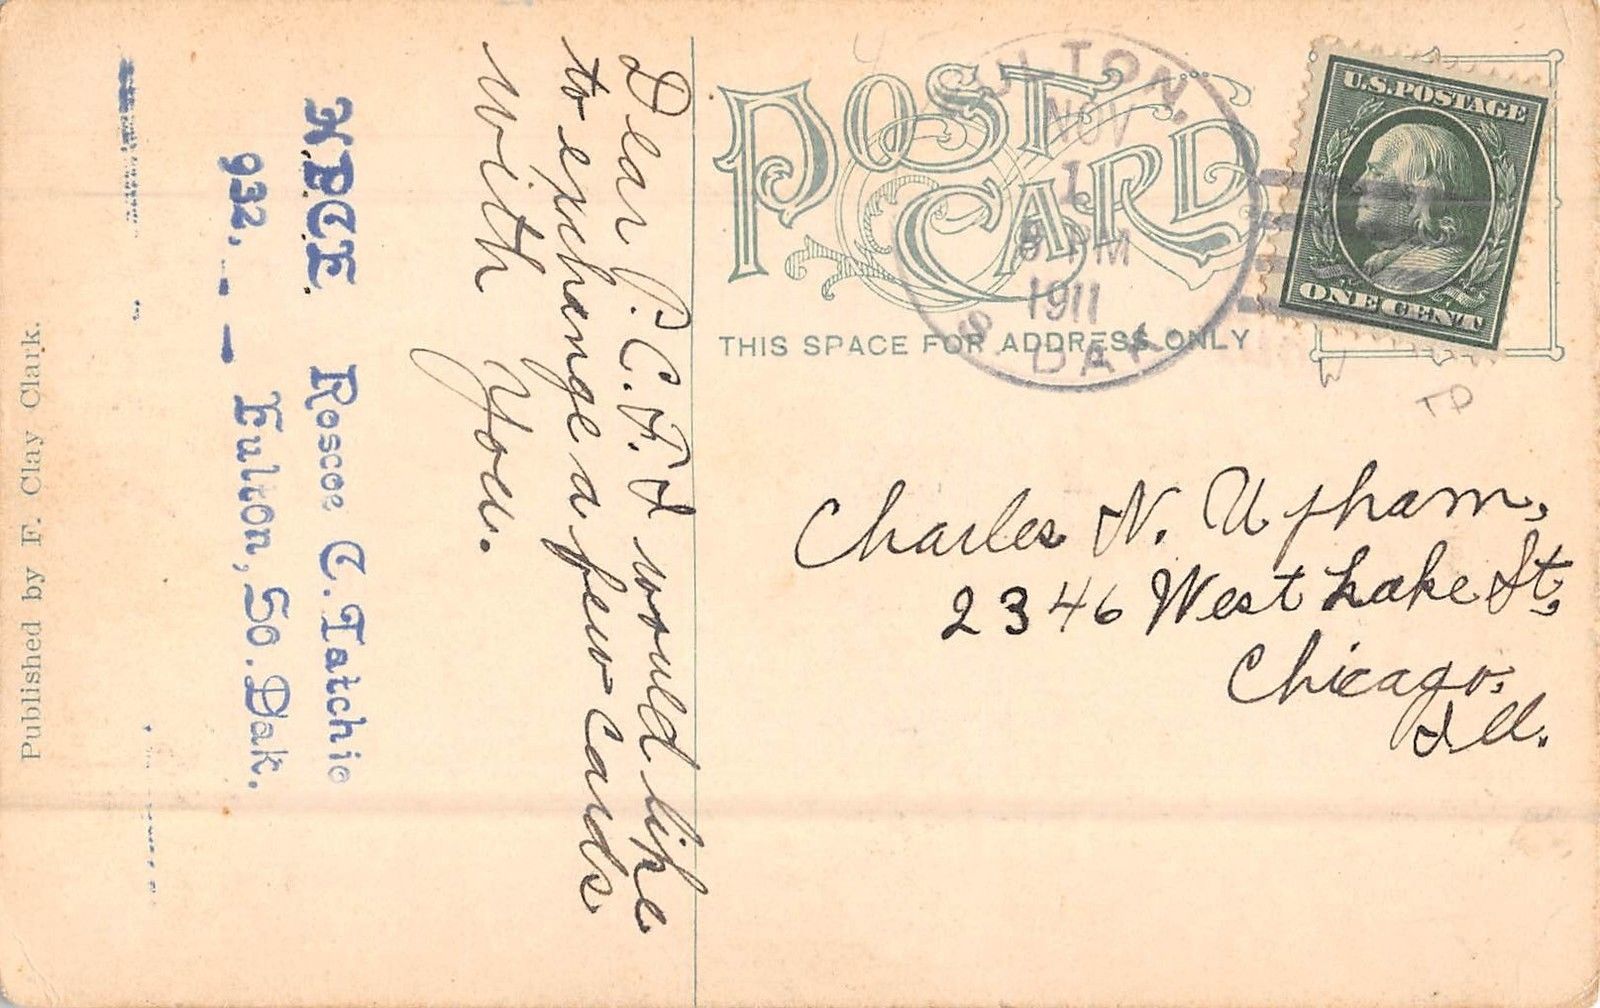 POST CARD
THIS SPACE FOR ADDRESS ONLY
FULTON,
NOV
1
8 PM
1911
S. DAK.
U.S. POSTAGE
ONE CENT
TD
Charles N. Upham,
2346 West Lake St,
Chicago,
Ill.
Dear P.C.F. I would like
to exchange a few cards
with you.
Roscoe C. Tatchio
932.
Fulton, So. Dak.
Published by F. Clay Clark.